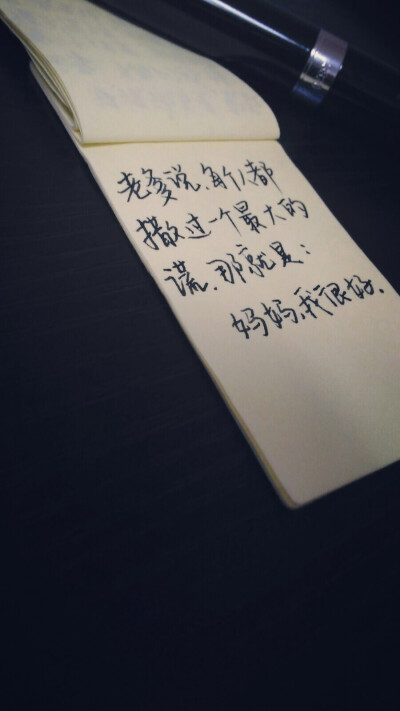 老爹说,每个人都
撒过一个最大的
谎,那就是:
妈妈,我很好.